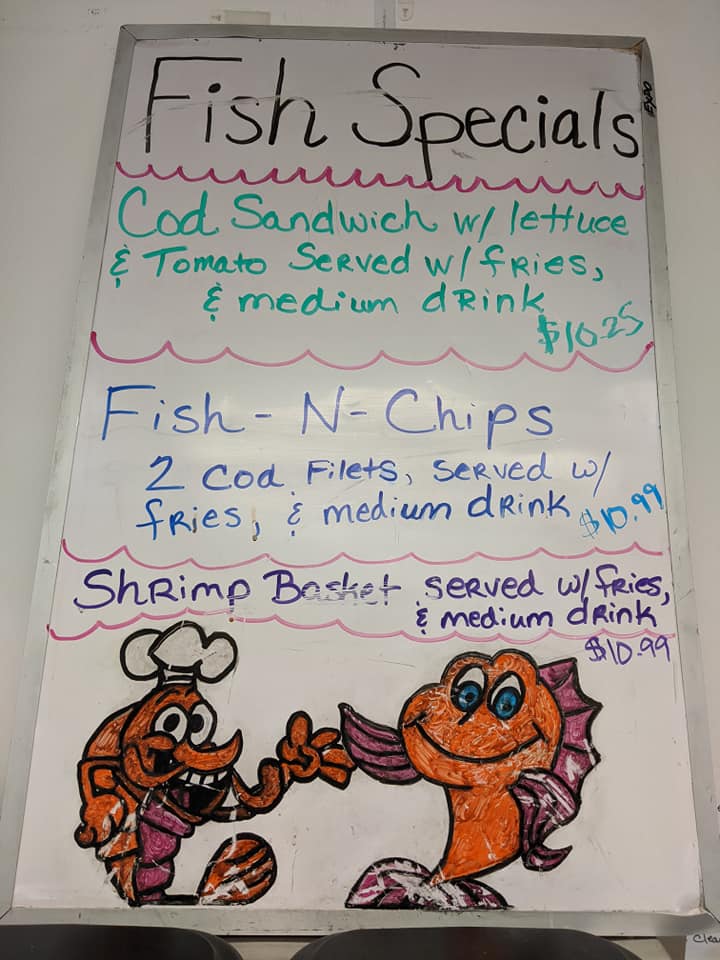 Fish Specials
EXPO
Cod Sandwich w/ lettuce
& Tomato Served w/ fries,
& medium drink
$10.25
Fish-N-Chips
2 Cod Filets, Served w/
fries, & medium drink
$10.99
Shrimp Basket served w/ fries,
& medium drink
$10.99